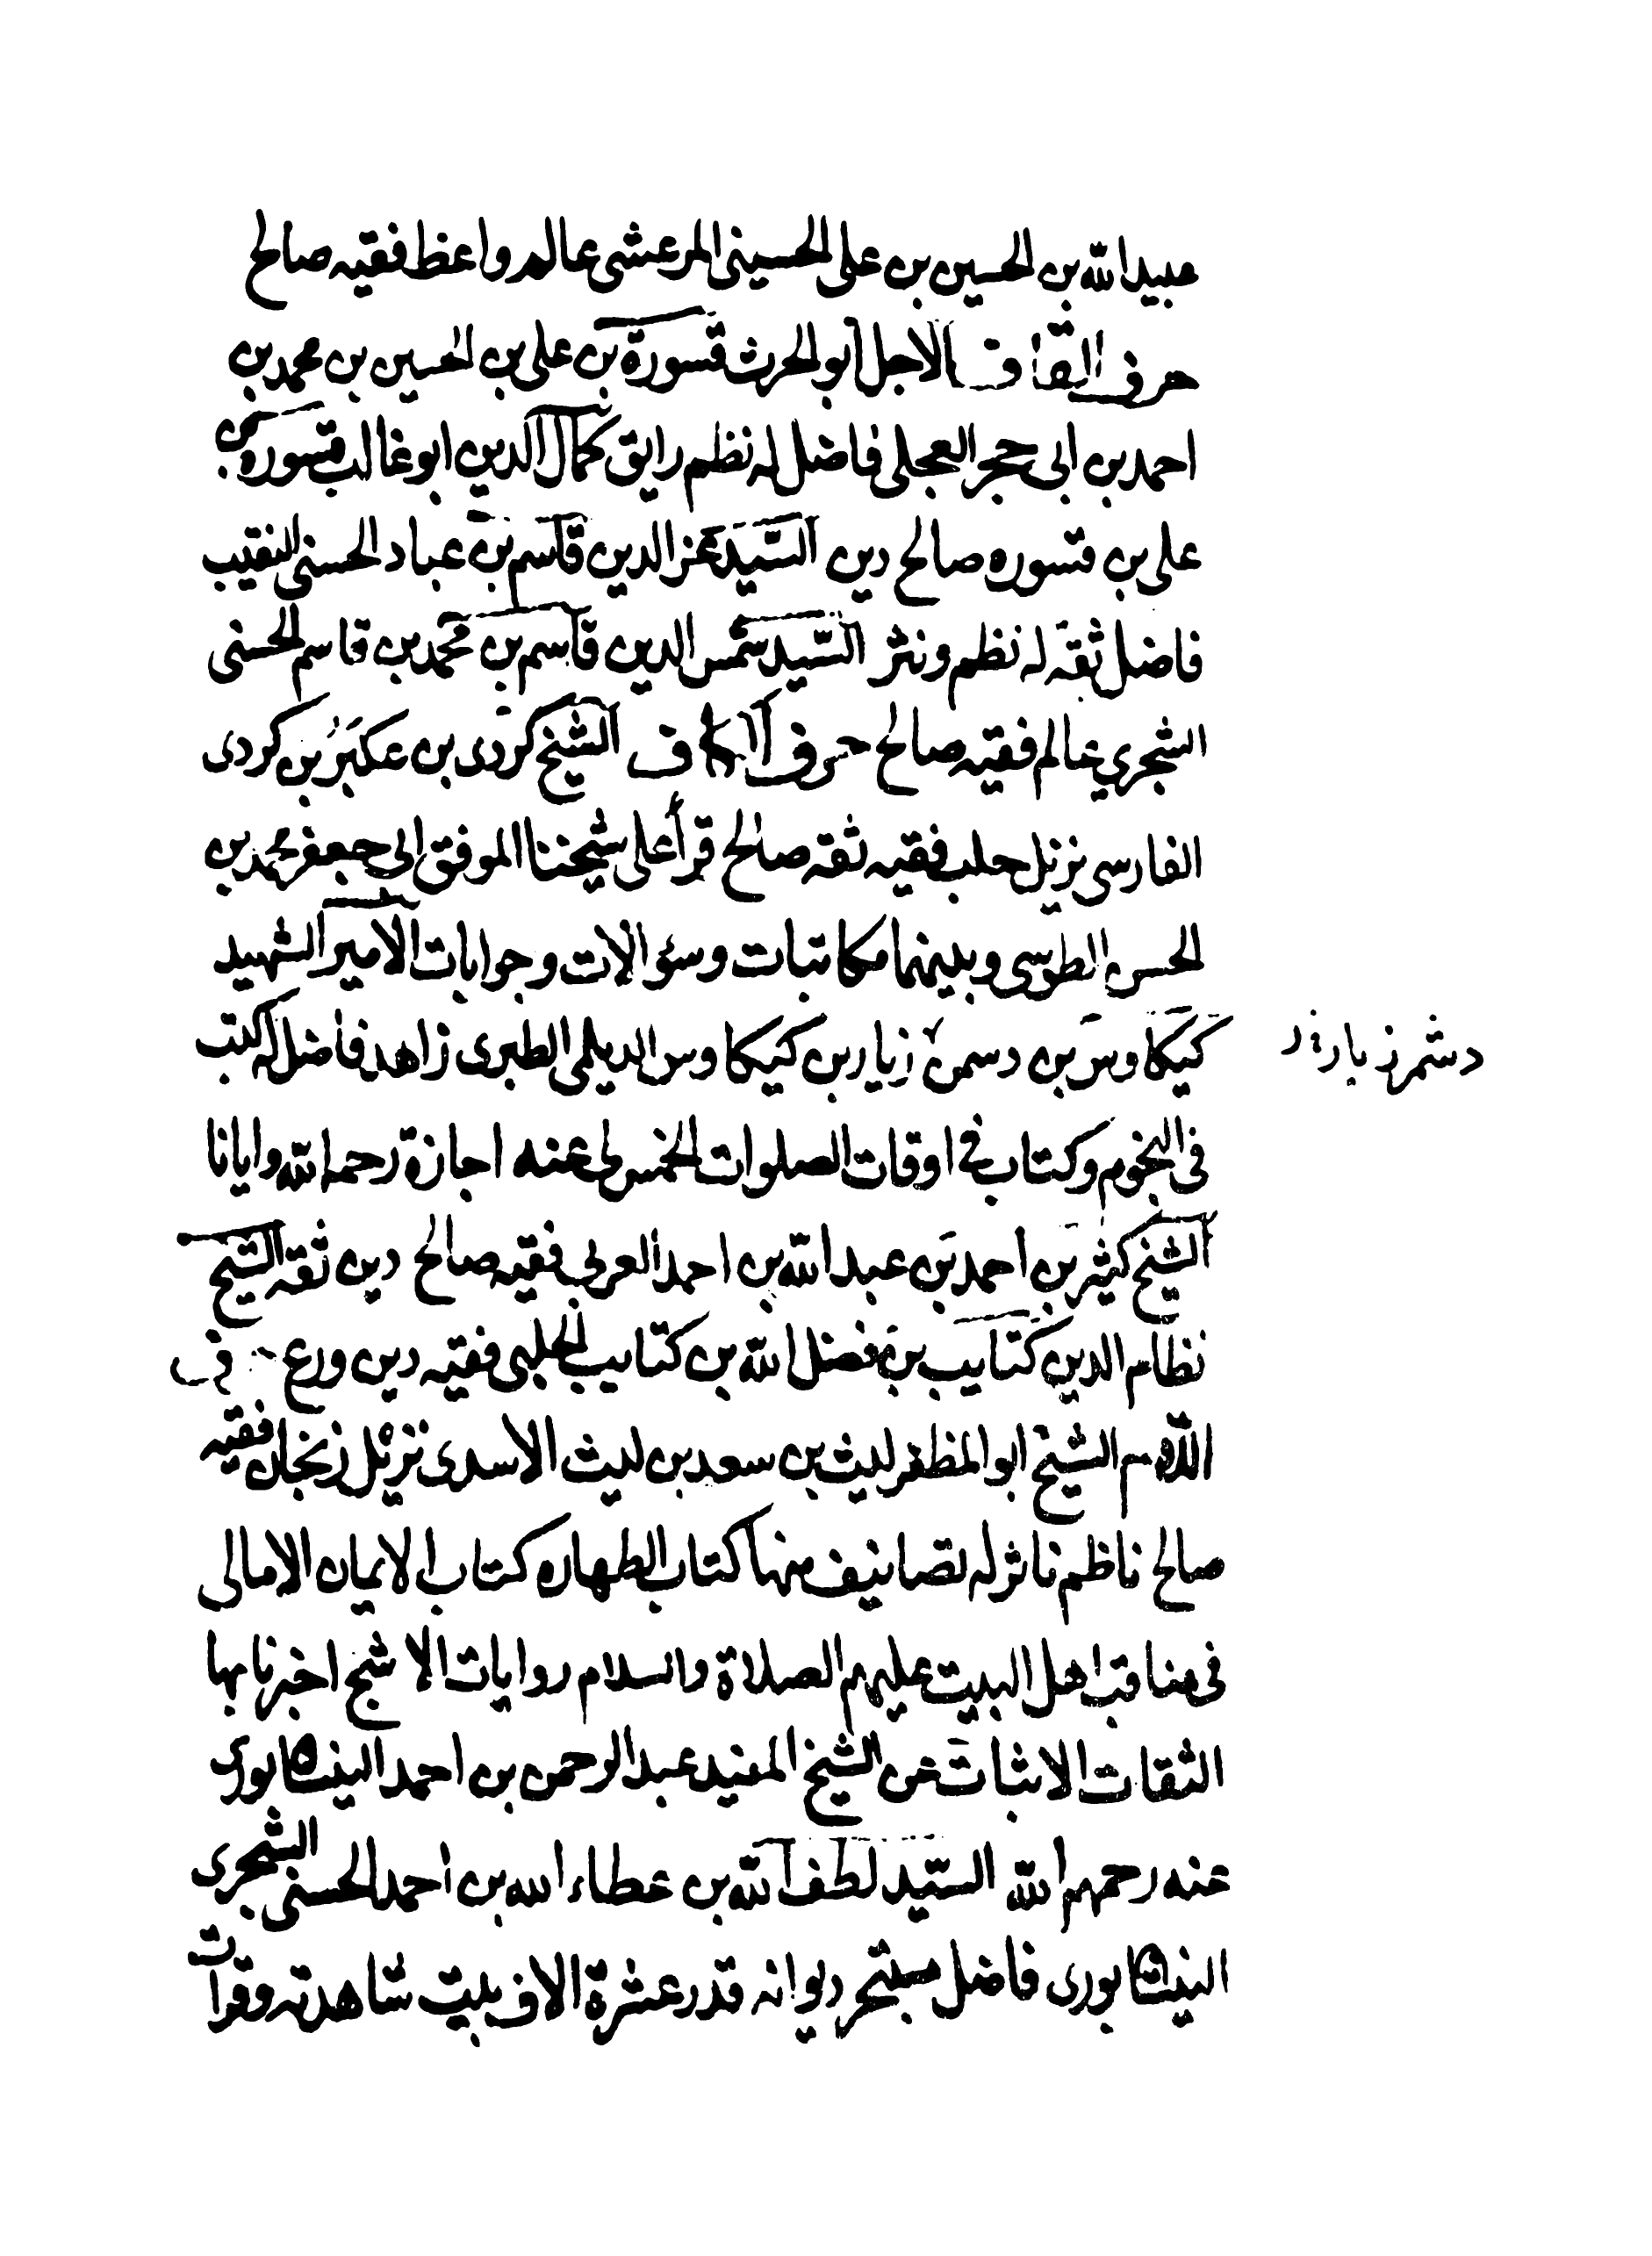 عبيد الله بن الحسين بن على الحسينى المرعشى عالم واعظ فقيه صالح
حرف القاف الاجل ابو الحرث قسورة بن على بن الحسين بن محمد بن
احمد بن ابى حجر العجلى فاضل له نظم رايق كمال الدين ابو غالب قسوره بن
على بن قسوره صالح دين السّيد عز الدين قاسم بن عباد الحسنى النقيب
فاضل ثقة له نظم ونثر السّيد شمس الدين قاسم بن محمد بن قاسم الحسنى
الشجري عالم فقيه صالح حرف الكاف الشيخ كردى بن عكبر بن كردى
الفارسى نزيل حلب فقيه ثقه صالح قرأ على شيخنا الموفق ابى جعفر محمد بن
الحسن الطوسى وبينهما مكاتبات وسؤالات وجوابات الامير الشهيد
كيكاوس بن دسمن زيار بن كيكاوس الديلمى الطبرى زاهد فاضل له كتب
دشمرزيار
فى النجوم وكتاب فى اوقات الصلوات الخمس لى عنه اجازة رحمه الله وايانا
الشيخ كثير بن احمد بن عبد الله بن احمد العربى فقيه صالح دين ثقه الشيخ
نظام الدين كتايب بن فضل الله بن كتايب الحلبى فقيه دين ورع
اللام الشيخ ابو المظفر ليث بن سعد بن ليث الاسدى نزيل زنجان فقيه
صالح ناظم ناثر له تصانيف منها كتاب الطهاره كتاب الايمان الامالى
فى مناقب اهل البيت عليهم الصلاة والسلام روايات الاشج اخبرنا بها
الثقات الاثبات عن الشيخ المفيد عبد الرحمن بن احمد النيشابورى
عنه رحمهم الله السّيد لطف الله بن عطاء الله بن احمد الحسنى الشجرى
النيشابورى فاضل متبحر ديوانه قدر عشرة الاف بيت شاهدته وقرات